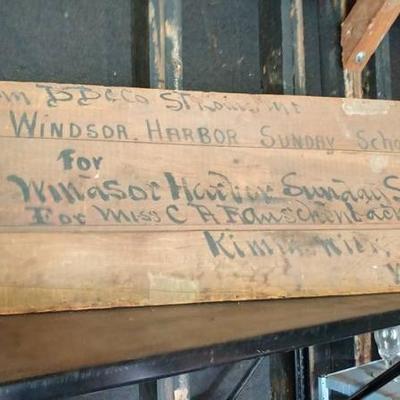 St Louis
WINDSOR. HARBOR SUNDAY Scho
For
Windsor Harbor Sunday S
For Miss C A Rauschenbach
Kimmswick